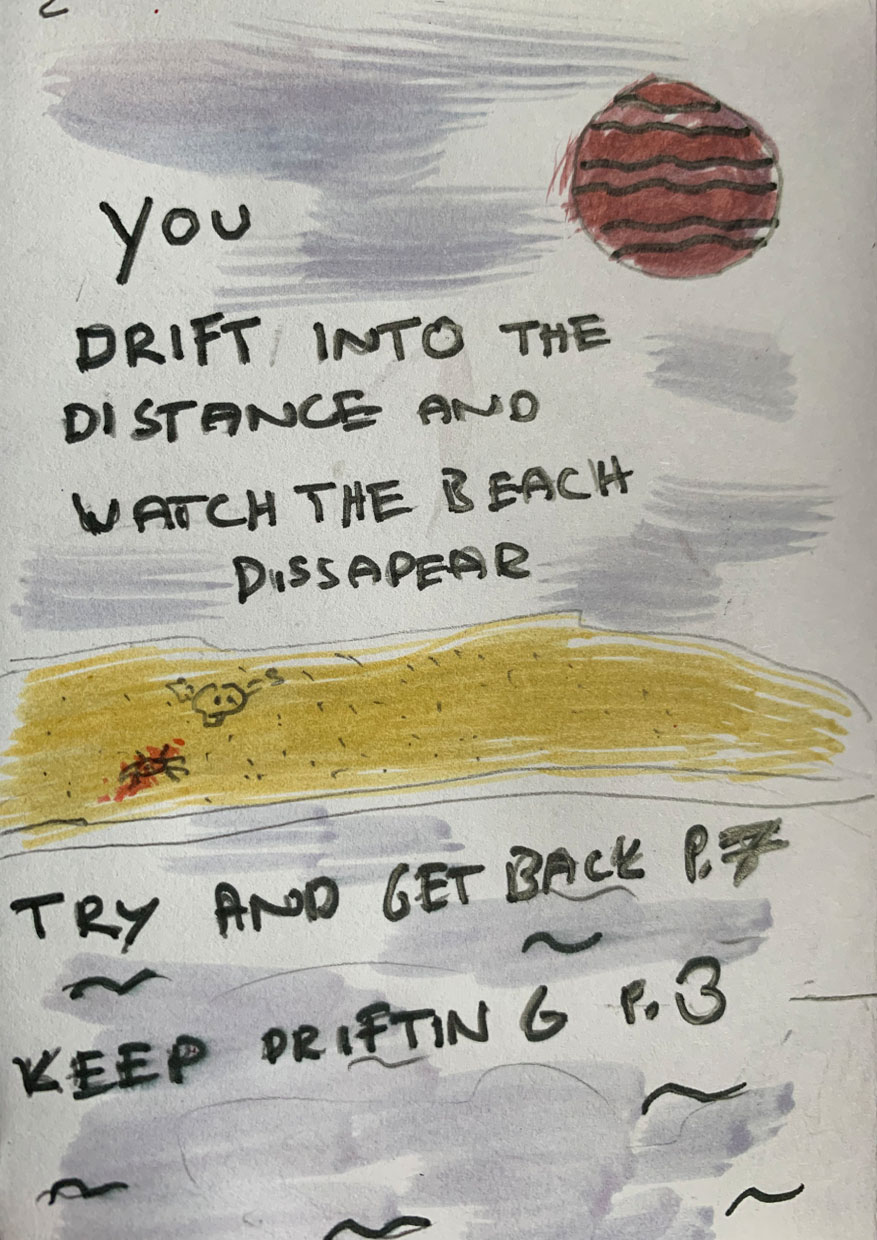 YOU
DRIFT INTO THE
DISTANCE AND
WATCH THE BEACH
DISSAPEAR
TRY AND GET BACK P.7
KEEP DRIFTING P.3